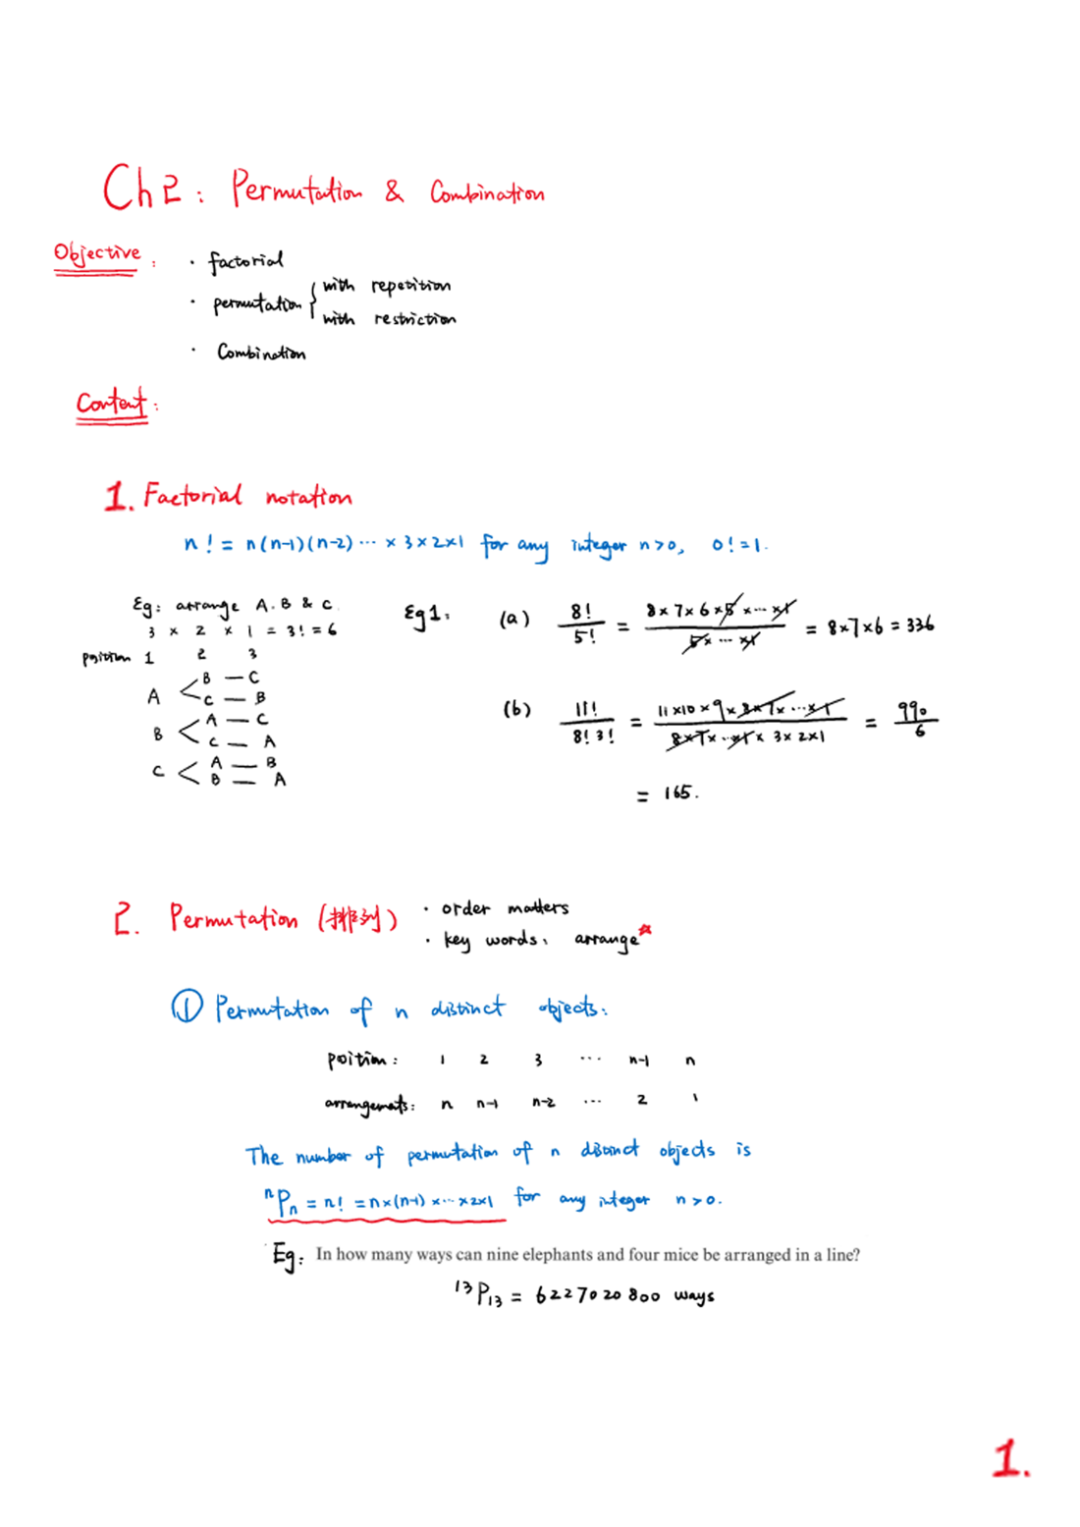 Ch2: Permutation & Combination
Objective:
· factorial
· permutation { with repetition
with restriction
· Combination
Content:
1. Factorial notation
n! = n(n-1)(n-2) ··· × 3×2×1 for any integer n>0, 0!=1.
Eg: arrange A. B & C.
3 × 2 × 1 = 3! = 6
position 1 2 3
A < B — C
C — B
B < A — C
C — A
C < A — B
B — A
Eg1: (a) 8!/5! = 8×7×6×5×···×1 / 5×···×1 = 8×7×6 = 336
(b) 11!/8!3! = 11×10×9×8×7×···×1 / 8×7×···×1×3×2×1 = 990/6
= 165.
2. Permutation (排列) · order matters
· key words: arrange☆
① Permutation of n distinct objects:
poition: 1 2 3 ··· n-1 n
arrangements: n n-1 n-2 ··· 2 1
The number of permutation of n distinct objects is
ⁿPₙ = n! = n×(n-1)×···×2×1 for any integer n>0.
Eg: In how many ways can nine elephants and four mice be arranged in a line?
¹³P₁₃ = 6227020800 ways
1.